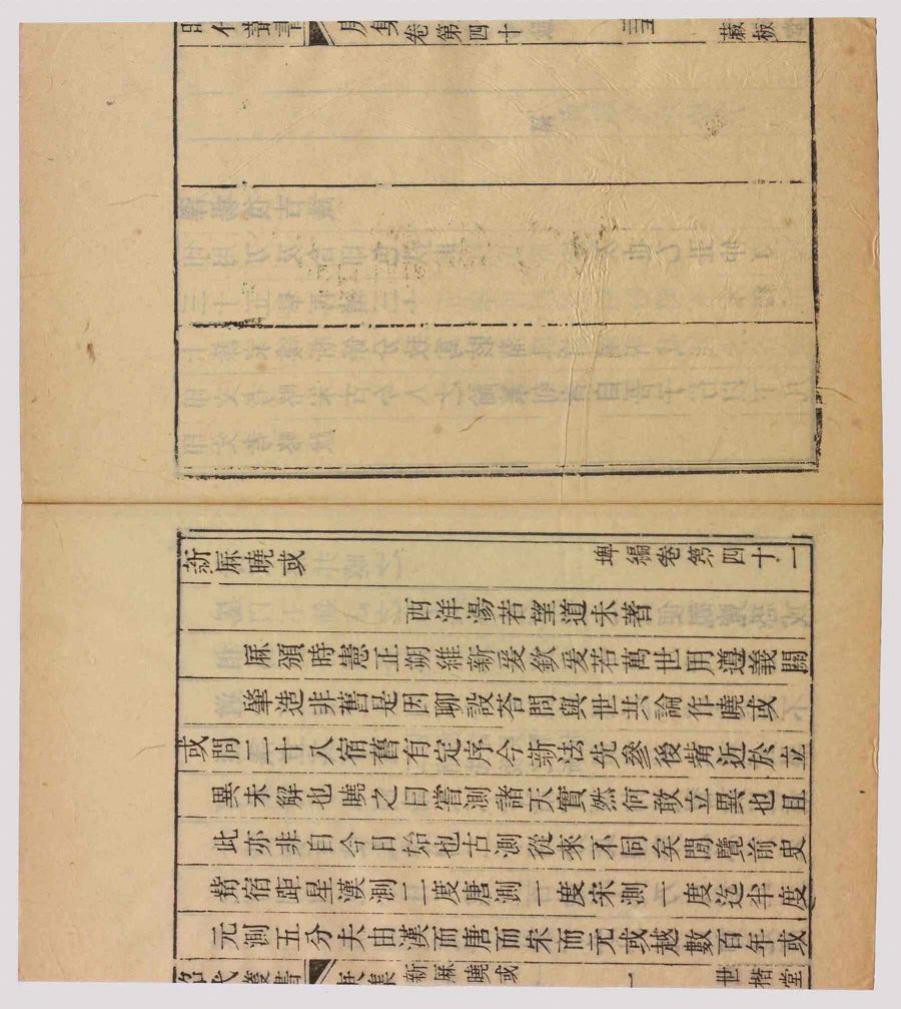 昭代叢書 卷第四十 藏板
新厤曉或 埤編卷第四十一
西洋湯若望道未著
厤頒時憲正朔維新爰欽爰若萬世用遵義關
肇造非舊是因聊設荅問與世共論作曉或
或問二十八宿舊有定序今新法先參後觜近於立
異未解也曉之曰嘗測諸天實然何敢立異也且
此亦非自今日始也古測從來不同矣閒覽前史
觜宿距星漢測二度唐測一度宋測一度迄半度
元測五分夫由漢而唐而宋而元或越數百年或
昭代叢書 集 新厤曉或 一 世楷堂